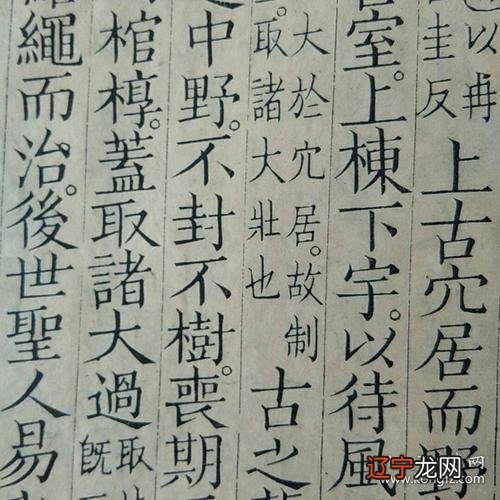 以冉
圭反
上古穴居而
室。上棟下宇。以待風
大於穴居。故制
取諸大壯也
古之
之中野。不封不樹。喪期
棺椁。蓋取諸大過
取
既
繩而治。後世聖人易
辽宁龙网
www.kongfz.com